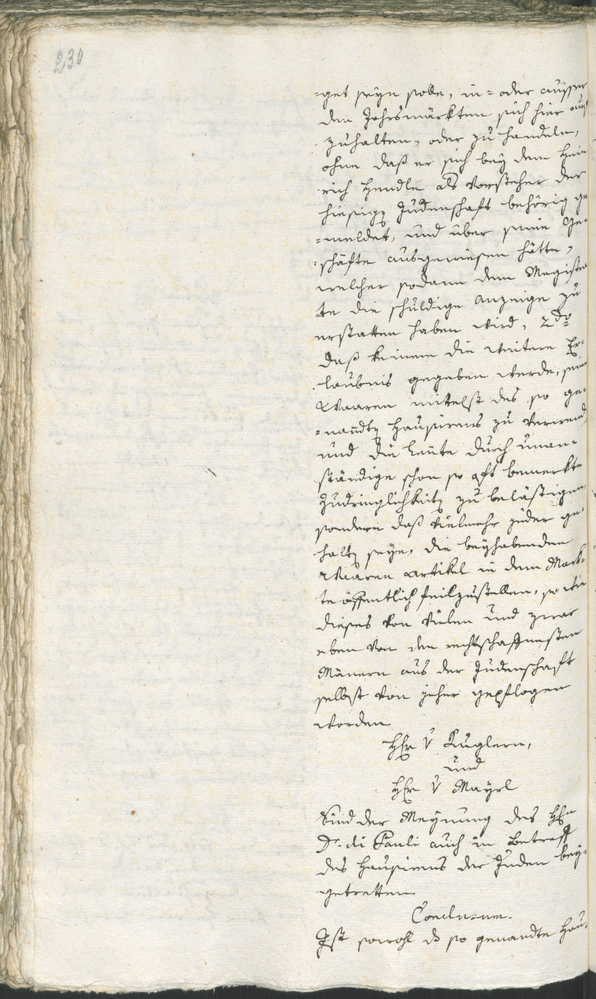 230
-get seyn solle, in- oder ausser
den Jahrsmärkten sich hier auf
zuhalten, oder zu handeln,
ohne daß er sich bey dem Hein
rich Hendle als Vorsteher der
hiesigen Judenschaft behörig ge
-meldet, und über seine Ge-
schäfte ausgewiesen hätte,
welcher sodann dem Magistra
te die schuldige Anzeige zu
erstatten haben wird, 2do
daß keinem die weitere Er-
laubnis gegeben werde, seine
Waaren mittelst des so ge-
-nandten Hausirens zu
und die Leute durch unan-
ständige schon so oft bemerkte
Zudringlichkeiten zu belästigen
sondern daß vielmehr jeder ge-
halten seye, die beyhabenden
Waaren artikel in dem Mark-
te öffentlich feilzustellen, so wie
dieses von vielen und zwar
eben von den rechtschaffensten
Männern aus der Judenschaft
selbst von jeher gepflogen
worden
Hr V Kuglern,
und
Hr V Mayrl
Sind der Meynung des Hrn
Dr. di Pauli auch in Betreff
des Hausirens der Juden bey-
getretten.
Conclusum.
Ist sowohl das so genandte Hau-